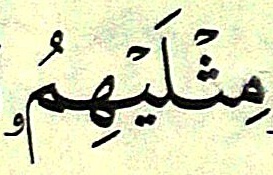 مِثۡلَيۡهِمُۥ